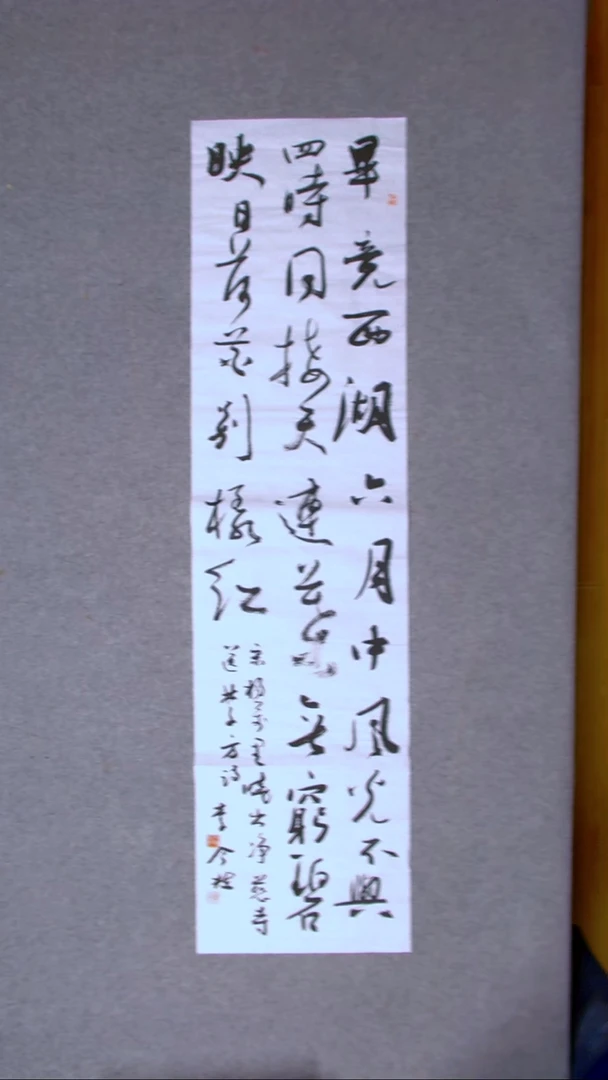 畢竟西湖六月中風光不與
四時同接天蓮葉無窮碧
映日荷花別樣紅
宋楊萬里曉出淨慈寺
送林子方詩 李